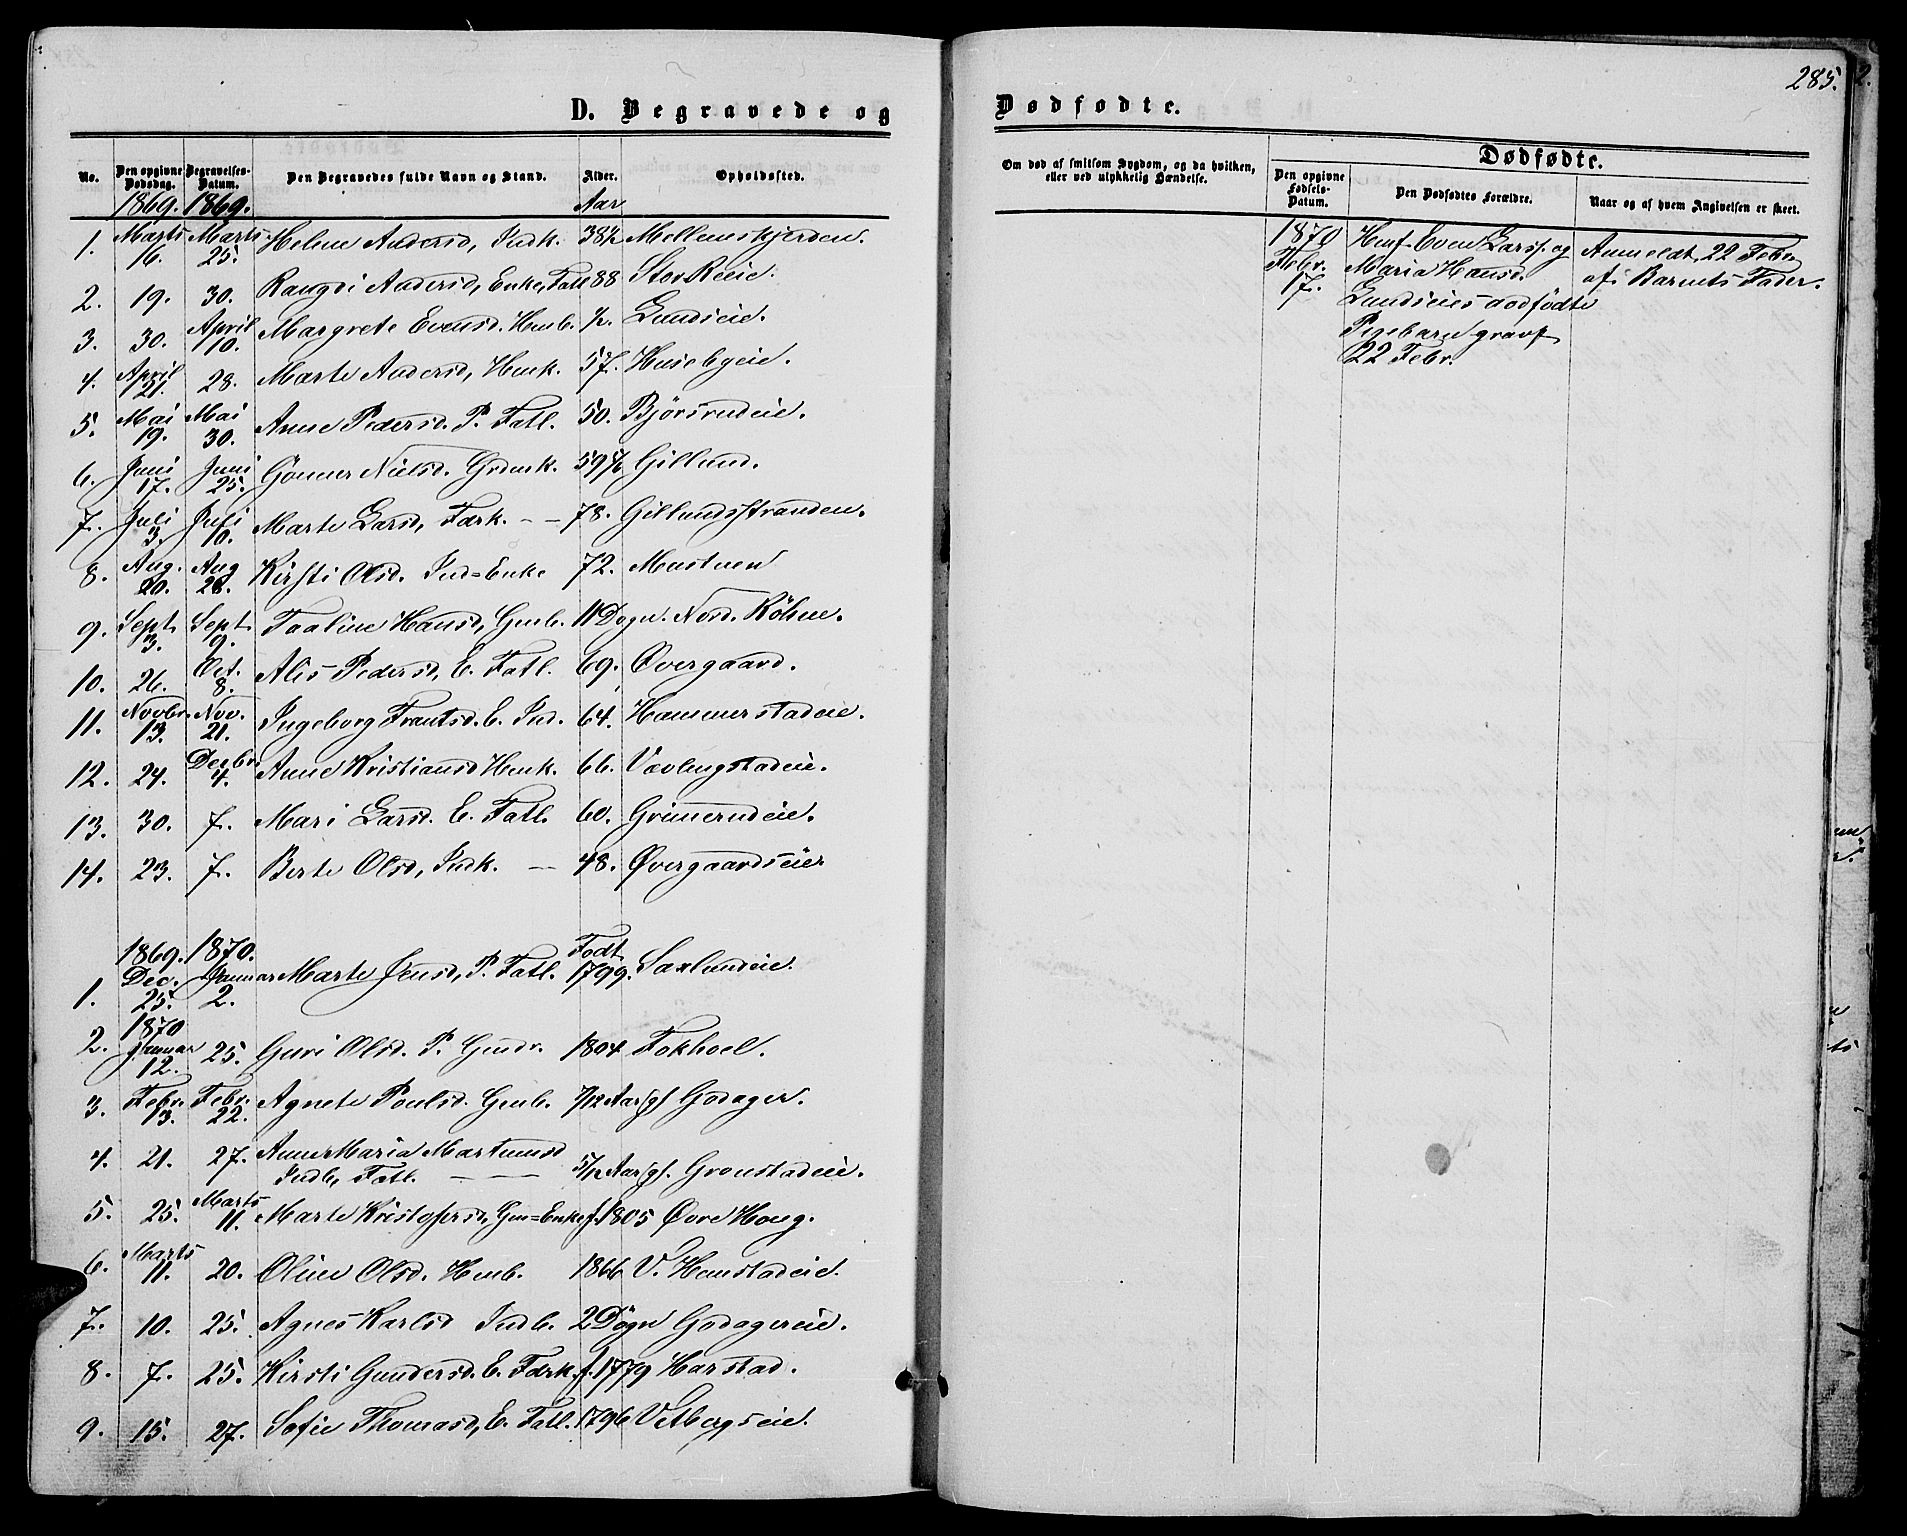 285.
D. Begravede og Dødfødte.
No. Den opgivne Dødsdag. Begravelses-Datum. Den Begravedes fulde Navn og Stand. Alder. Opholdssted.
Om død af smitsom Sygdom, og da hvilken, eller ved ulykkelig Hændelse.
Dødfødte.
Den opgivne Fødsels-Datum. Den Dødfødtes Forældre. Naar og af hvem Angivelsen er skeet.
1869. 1869. Aar
1. Marts 16. Marts 25. Helene Andersd, Indk. 38½ Mellemskjerden.
2. 19. 30. Rangdi Andersd, Enke, Fatl 88 Stor Reeie.
3. 30. April 10. Margrete Evensd. Husb. ½. Lundseie.
4. April 21. 28. Marte Andersd, Husk. 57. Husebyeie.
5. Mai 19. Mai 30. Anne Pedersd. P. Fatl. 50. Bjørsrudeie.
6. Juni 17. Juni 25. Gönner Nielsd. Grdmk. 59 Gillund.
7. Juli 3. Juli 10. Marte Larsd, Færk. - - 78. Gillundsstranden.
8. Aug. 20. Aug 28. Kirsti Olsd. Ind=Enke 72. Mustuen
9. Sept 3. Sept 9. Taaline Hansd, Gmb. 11 Dogn. Nord. Köhne.
10. 26. Oct. 8. Alis Pedersd, E. Fatl. 69. Øvergaard.
11. Novbr. 13. Nov. 21. Ingeborg Frantsd. E. Ind. 64. Hammerstadeie.
12. 24. Decbr. 4. Anne Kristiansd Husk. 66. Vævlingstadeie.
13. 30. 7. Mari Larsd. E. Fatl. 60. Grimerudeie.
14. 23. 7. Berte Olsd, Indk. — 48. Øvergaardseier
1869. 1870. Fodt
1. Dec. 25. Januar 2. Marte Jensd, P. Fatl. 1799. Saxlundeie.
1870
2. Januar 12. 25. Guri Olsd. P. Gmdr. 1804 Fokhoel.
3. Febr. 13. Febr. 22. Agnete Poulsd. Gmb. 7/12 Aar gl Godager.
4. 21. 27. Anne Maria Martinusd
Indb, Fatl. — — 5/12 Aar gl. Gronstadeie.
5. 25. Marts 11. Marte Kristofersd, Gm=Enke f. 1805 Øvre Houg.
6. Marts 11. 20. Oline Olsd. Husb. 1866 V. Hemstadeie.
7. 10. 25. Agnes Karlsd Indb. 2 Dögn Godagereie.
8. 7. 25. Kirsti Gundersd. E. Færk. f. 1779 Harstad.
9. 15. 27. Sofie Thomasd, E. Fatl. 1796 Vetbergseie.
1870 Febr. 17.
Husf. Even Larss. og
Maria Hansd.
Lundseies dödfödte
Pigebarn gravf.
22 Febr.
Anmeldt 22 Febr.
af Barnets Fader.